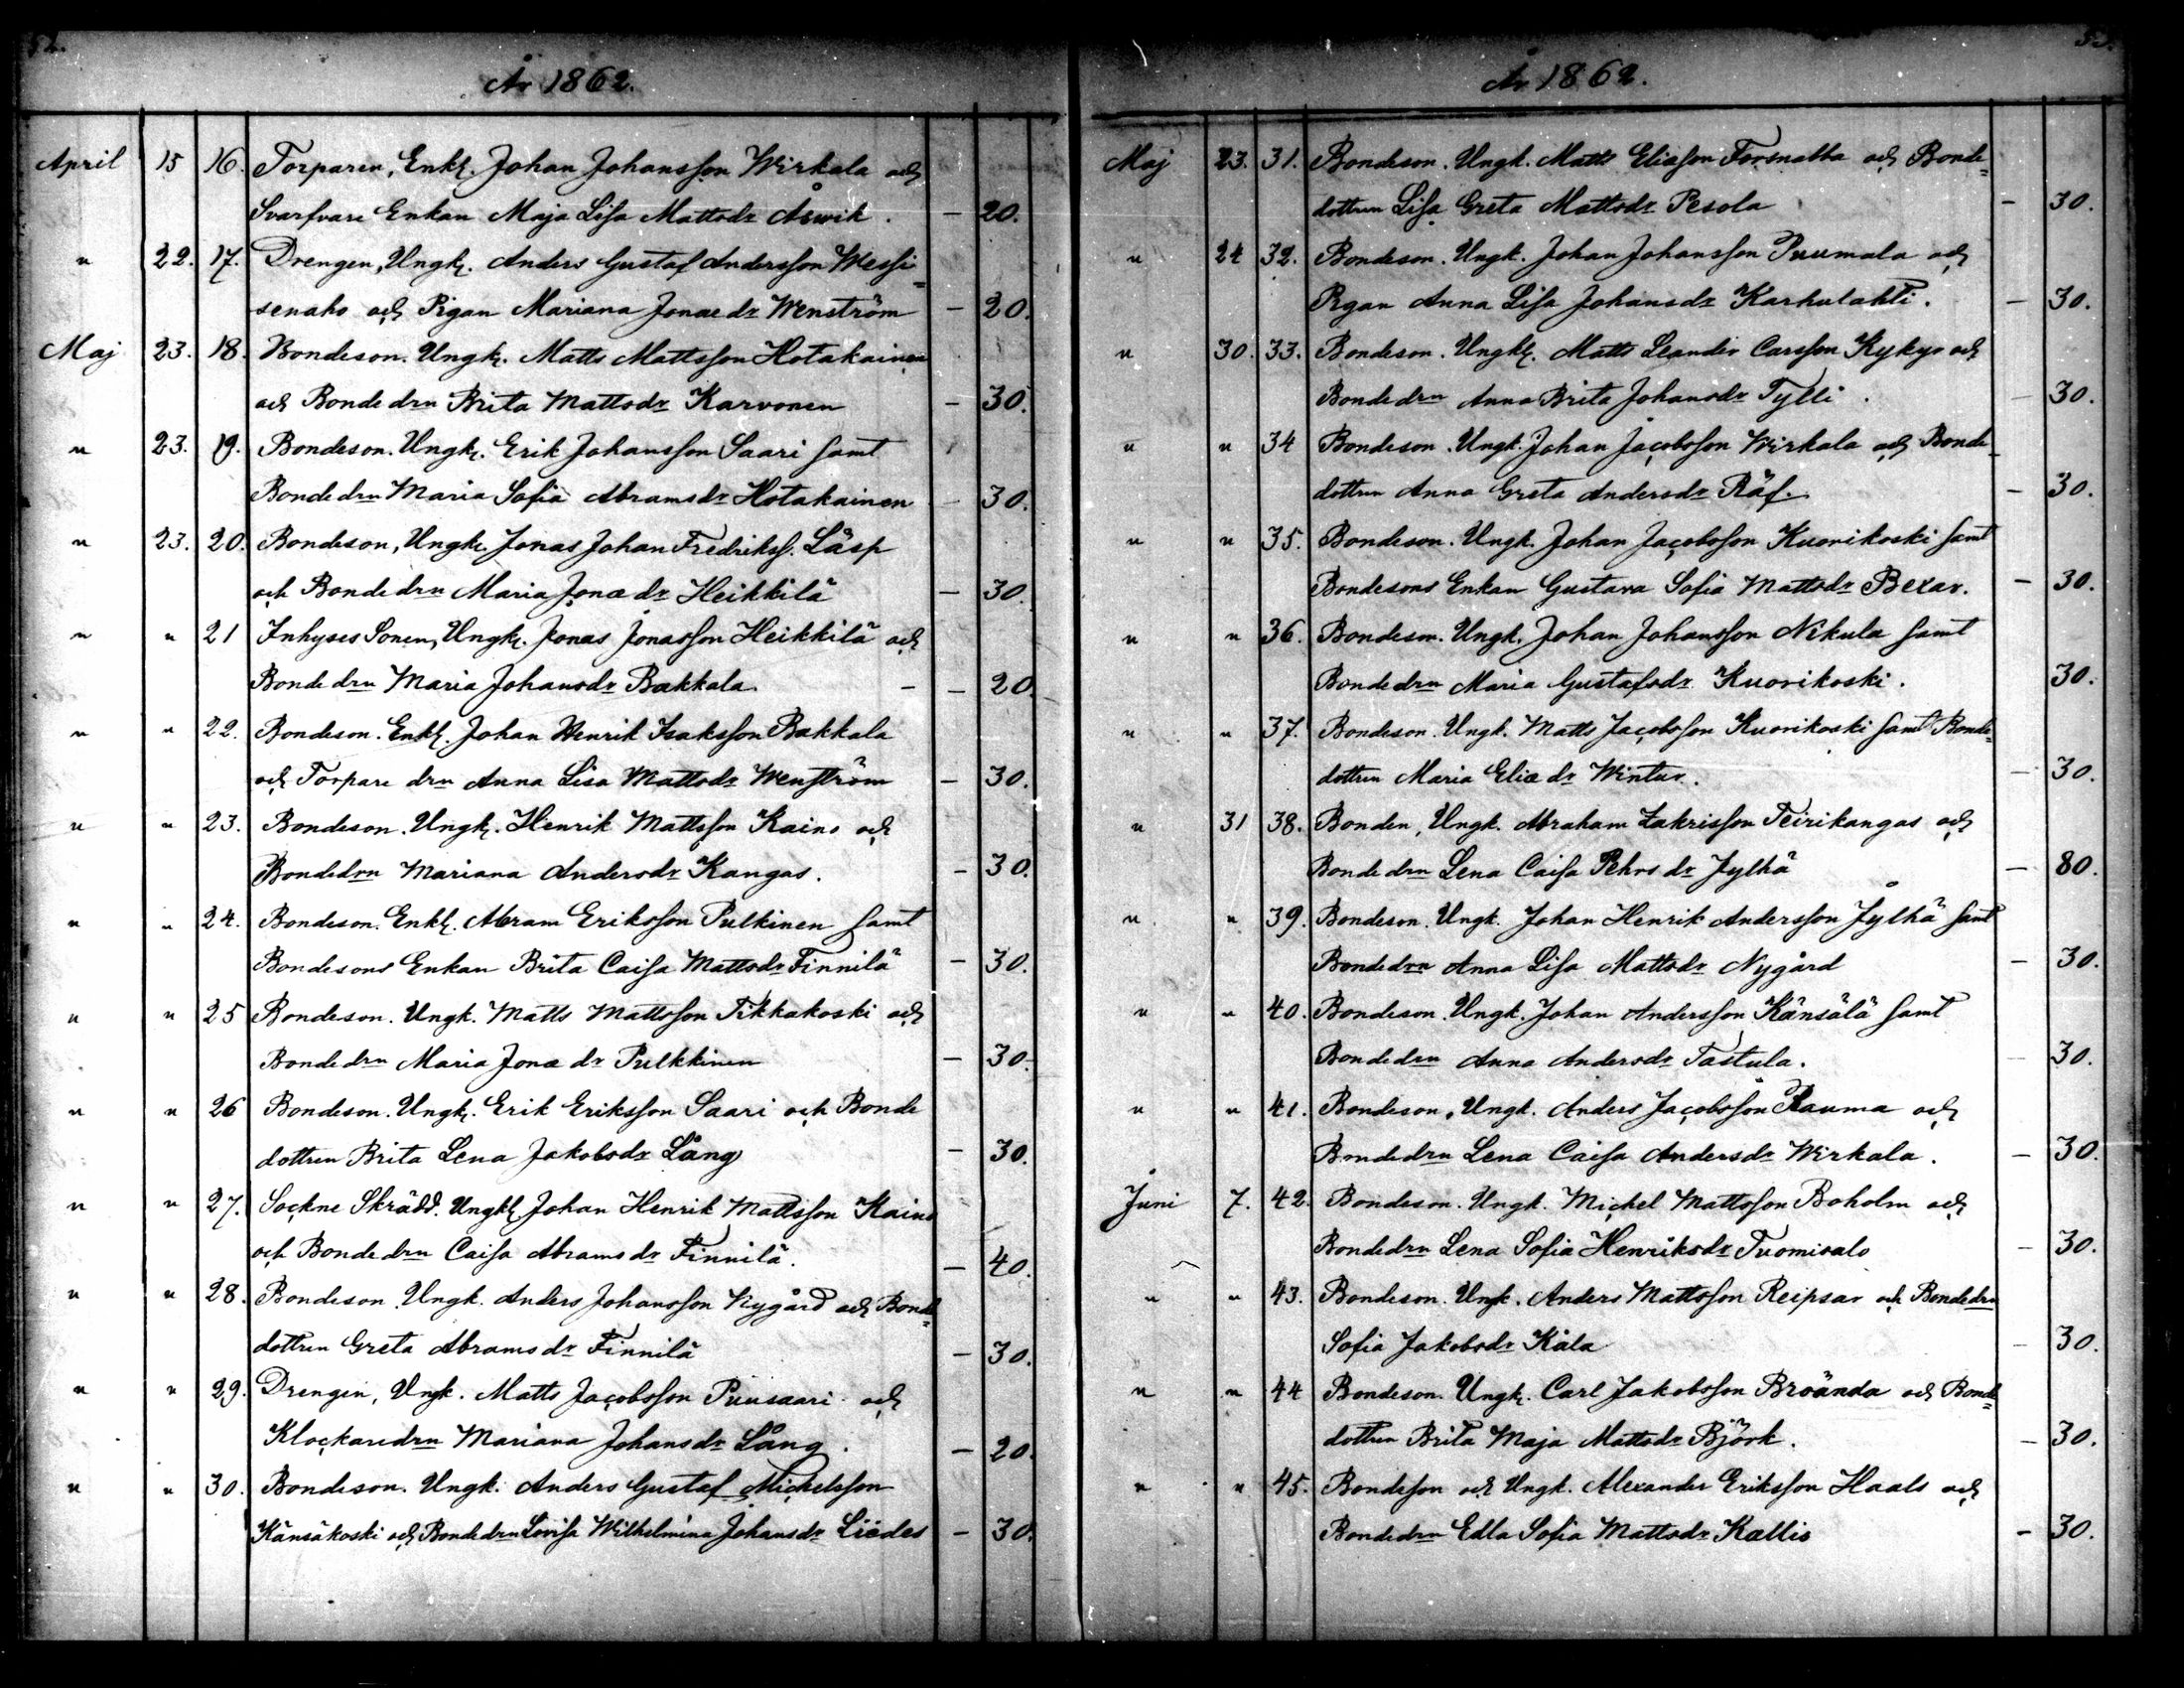 52.
År 1862.
April 15 16. Torparen, Enkl. Johan Johansson Wirkala och
Svarfvare Enkan Maja Lisa Mattsdr Åswik. — 20.
" 22. 17. Drengen, Ungk. Anders Gustaf Andersson Messi=
senaho och Pigan Mariana Jonaedr Wenström — 20.
Maj 23. 18. Bondeson. Ungk. Matts Mattsson Hotakainen
och Bonde drn Brita Mattsdr Karvonen — 30.
" 23. 19. Bondeson. Ungk. Erik Johansson Saari samt
Bonde drn Maria Sofia Abramsdr Hotakainen — 30.
" 23. 20. Bondeson, Ungk. Jonas Johan Fredrikss. Läsp
och Bonde drn Maria Jonaedr Heikkilä — 30.
" " 21 Inhyses Sonen, Ungk. Jonas Jonasson Heikkilä och
Bonde drn Maria Johansdr Bakkala. — — 20
" " 22. Bondeson. Enkl. Johan Henrik Isaksson Bakkala
och Torpare drn Anna Lisa Mattsdr Wenström — 30.
" " 23. Bondeson. Ungk. Henrik Mattsson Kaino och
Bondedrn Mariana Andersdr Kangas. — 30.
" " 24. Bondeson. Enkl. Abram Eriksson Pulkinen samt
Bondesons Enkan Brita Caisa Mattsdr Finnilä — 30.
" " 25 Bondeson. Ungk. Matts Mattsson Tikkakoski och
Bonde drn Maria Jonae dr Pulkkinen — 30.
" " 26 Bondeson. Ungk. Erik Eriksson Saari och Bonde
dottren Brita Lena Jakobsdr Lång — 30.
" " 27. Sockne Skrädd. Ungkl. Johan Henrik Mattsson Kaino
och Bonde drn Caisa Abrams dr Finnilä. — 40.
" " 28. Bondeson. Ungk. Anders Johansson Nygård och Bonde=
dottren Greta Abramsdr Finnilä — 30.
" " 29. Drengen, Ungk. Matts Jacobsson Puusaari och
Klockaredrn Mariana Johansdr Lång. — 20.
" " 30. Bondeson. Ungk. Anders Gustaf Michelsson
Känsäkoski och Bonde drn Lovisa Wilhelmina Johansdr Liedes — 30.
År 1862.
Maj 23. 31. Bondeson. Ungk. Matts Eliasson Forsnabba och Bonde=
dottren Lisa Greta Mattsdr Pesola — 30.
" 24 32. Bondeson. Ungk. Johan Johansson Puumala och
Pigan Anna Lisa Johansdr Karhulahti. — 30.
" 30. 33. Bondeson. Ungkl. Matts Leander Carsson Kykyr och
Bonde drn Anna Brita Johansdr Tylli. — 30.
" " 34 Bondeson. Ungk. Johan Jacobsson Wirkala och Bonde=
dottren Anna Greta Andersdr Räf. — 30.
" " 35. Bondeson. Ungk. Johan Jacobsson Kuorikoski samt
Bondesons Enkan Gustava Sofia Mattsdr Bexar. — 30.
" " 36. Bondeson. Ungk. Johan Johansson Nikula samt
Bondedrn Maria Gustafsdr Kuorikoski. 30.
" " 37. Bondeson. Ungk. Matts Jacobsson Kuorikoski samt Bonde=
dottren Maria Eliae dr Wintur. — 30.
" 31 38. Bonden, Ungk. Abraham Zakrisson Teirikangas och
Bonde drn Lena Caisa Pehrs dr Jylhä — 80.
" " 39. Bondeson. Ungk. Johan Henrik Andersson Jylhä samt
Bondedrn Anna Lisa Mattsdr Nygård — 30.
" " 40. Bondeson. Ungk. Johan Andersson Känsälä samt
Bondedrn Anna Andersdr Tastula. — 30.
" " 41. Bondeson, Ungk. Anders Jacobsson Rauma och
Bondedrn Lena Caisa Andersdr Wirkala. — 30.
Juni 7. 42. Bondeson. Ungk. Michel Mattsson Boholm och
Bondedrn Lena Sofia Henriksdr Tuomisalo — 30.
" " 43. Bondeson. Ungk. Anders Mattsson Reipsar och Bondedrn
Sofia Jakobsdr Kåla — 30.
" " 44 Bondeson. Ungk. Carl Jakobsson Broända och Bonde=
dottren Brita Maja Mattsdr Björk. — 30.
" " 45. Bondeson och Ungk. Alexander Eriksson Haals och
Bondedrn Edla Sofia Mattsdr Kallis — 30.